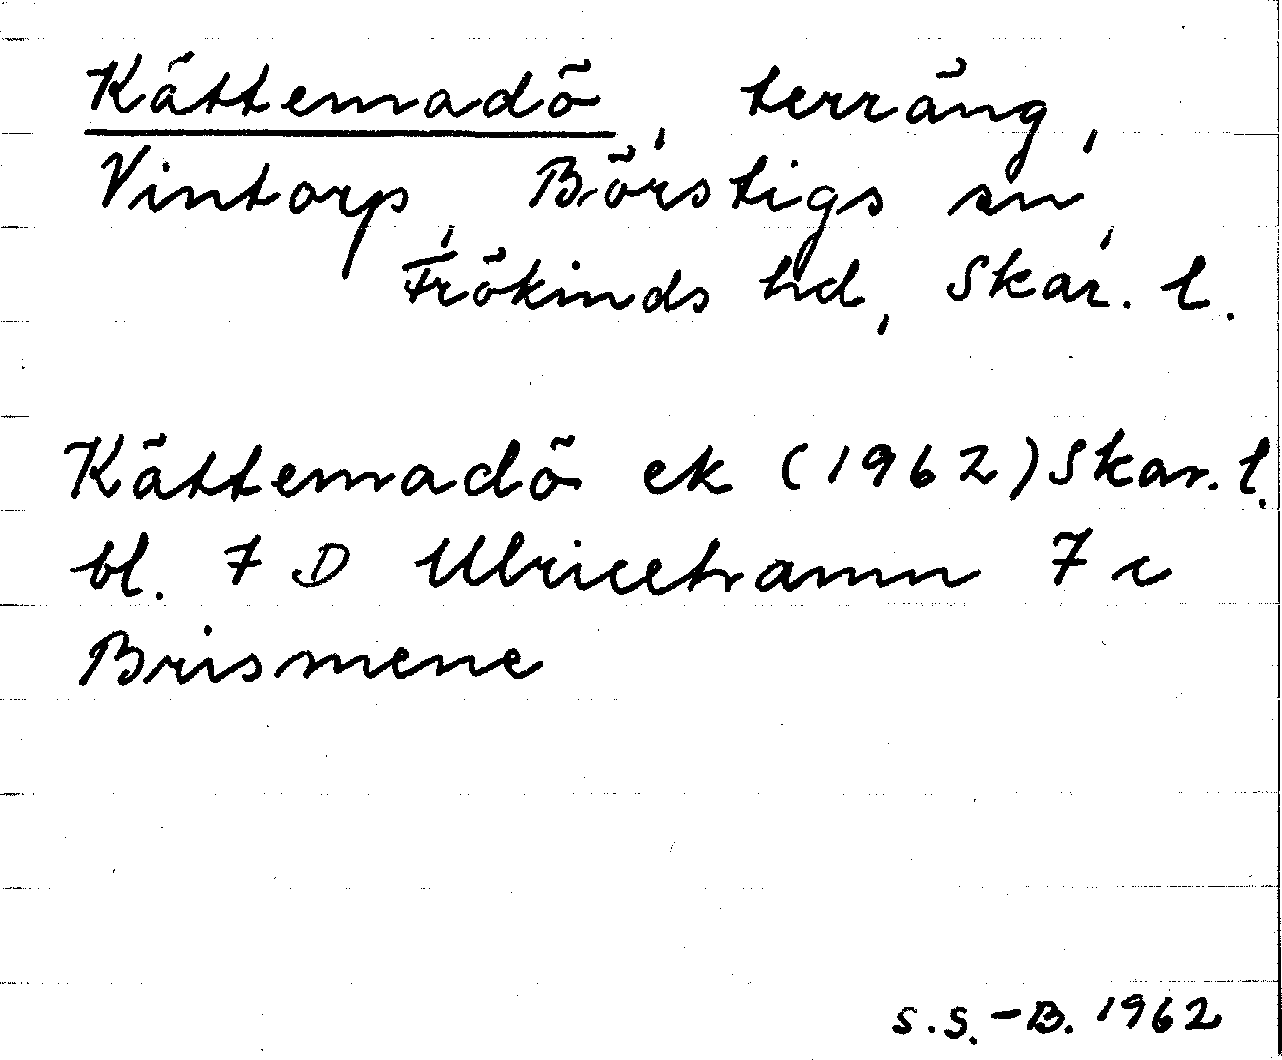 Kättemadö, terräng,
Vintorp, Börstigs sn,
Frökinds hd, Skar. l.
Kättemadö ek (1962) Skar. l.
bl. 7 D Ulricehamn 7 c
Brismene
S.S.-B. 1962